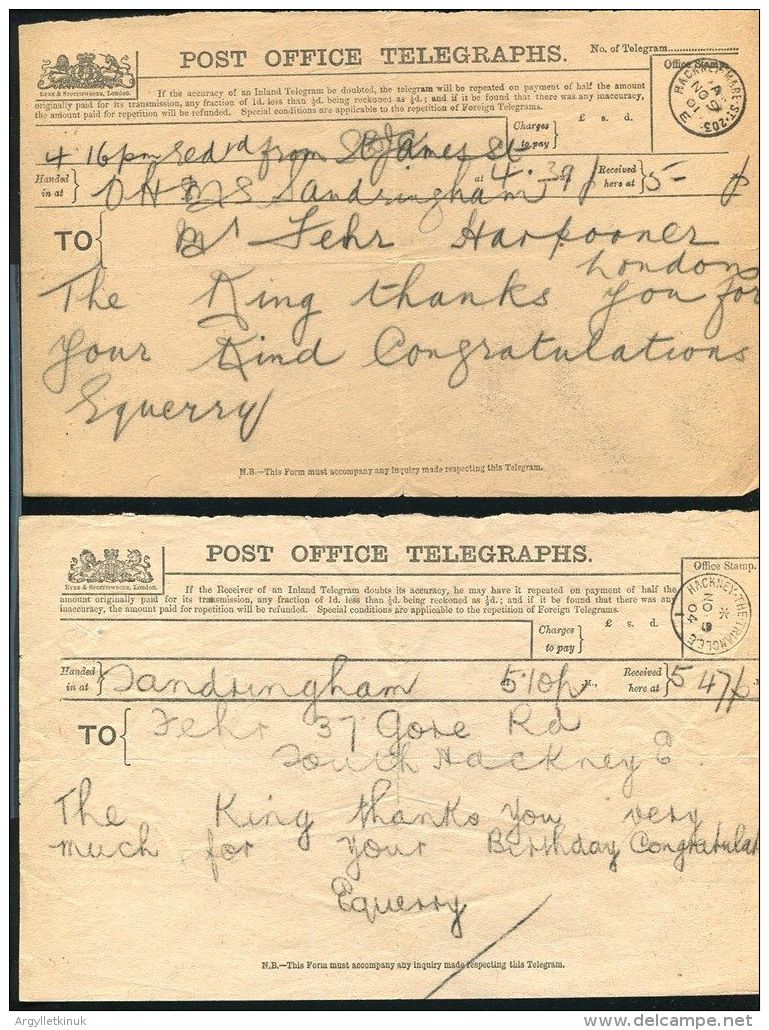 POST OFFICE TELEGRAPHS.
No. of Telegram
EYRE & SPOTTISWOODE, London.
If the accuracy of an Inland Telegram be doubted, the telegram will be repeated on payment of half the amount
originally paid for its transmission, any fraction of 1d. less than ½d. being reckoned as ½d.; and if it be found that there was any inaccuracy,
the amount paid for repetition will be refunded. Special conditions are applicable to the repetition of Foreign Telegrams.
Office Stamp.
HACKNEY-MARE ST-203.
NO 9
01
E
Charges to pay
£ s. d.
4.16pm Red'd from St James St
Handed in at
OHMS Sandringham
at 4.39 p
Received here at
5- p
TO
Mr Fehr Harpooner
London
The King thanks you for
your Kind Congratulations
Equerry
N.B.—This Form must accompany any inquiry made respecting this Telegram.
POST OFFICE TELEGRAPHS.
EYRE & SPOTTISWOODE, London.
If the Receiver of an Inland Telegram doubts its accuracy, he may have it repeated on payment of half the
amount originally paid for its transmission, any fraction of 1d. less than ½d. being reckoned as ½d.; and if it be found that there was any
inaccuracy, the amount paid for repetition will be refunded. Special conditions are applicable to the repetition of Foreign Telegrams.
Office Stamp.
HACKNEY-THE TRIANGLE.E
NO 9
04
Charges to pay
£ s. d.
Handed in at
Sandringham
5.10p M.,
Received here at
5 47p
TO
Fehr 37 Gore Rd
South Hackney E
The King thanks you very
much for your Birthday Congratulat
Equerry
N.B.—This Form must accompany any inquiry made respecting this Telegram.
Argylletkinuk
delcampe.net